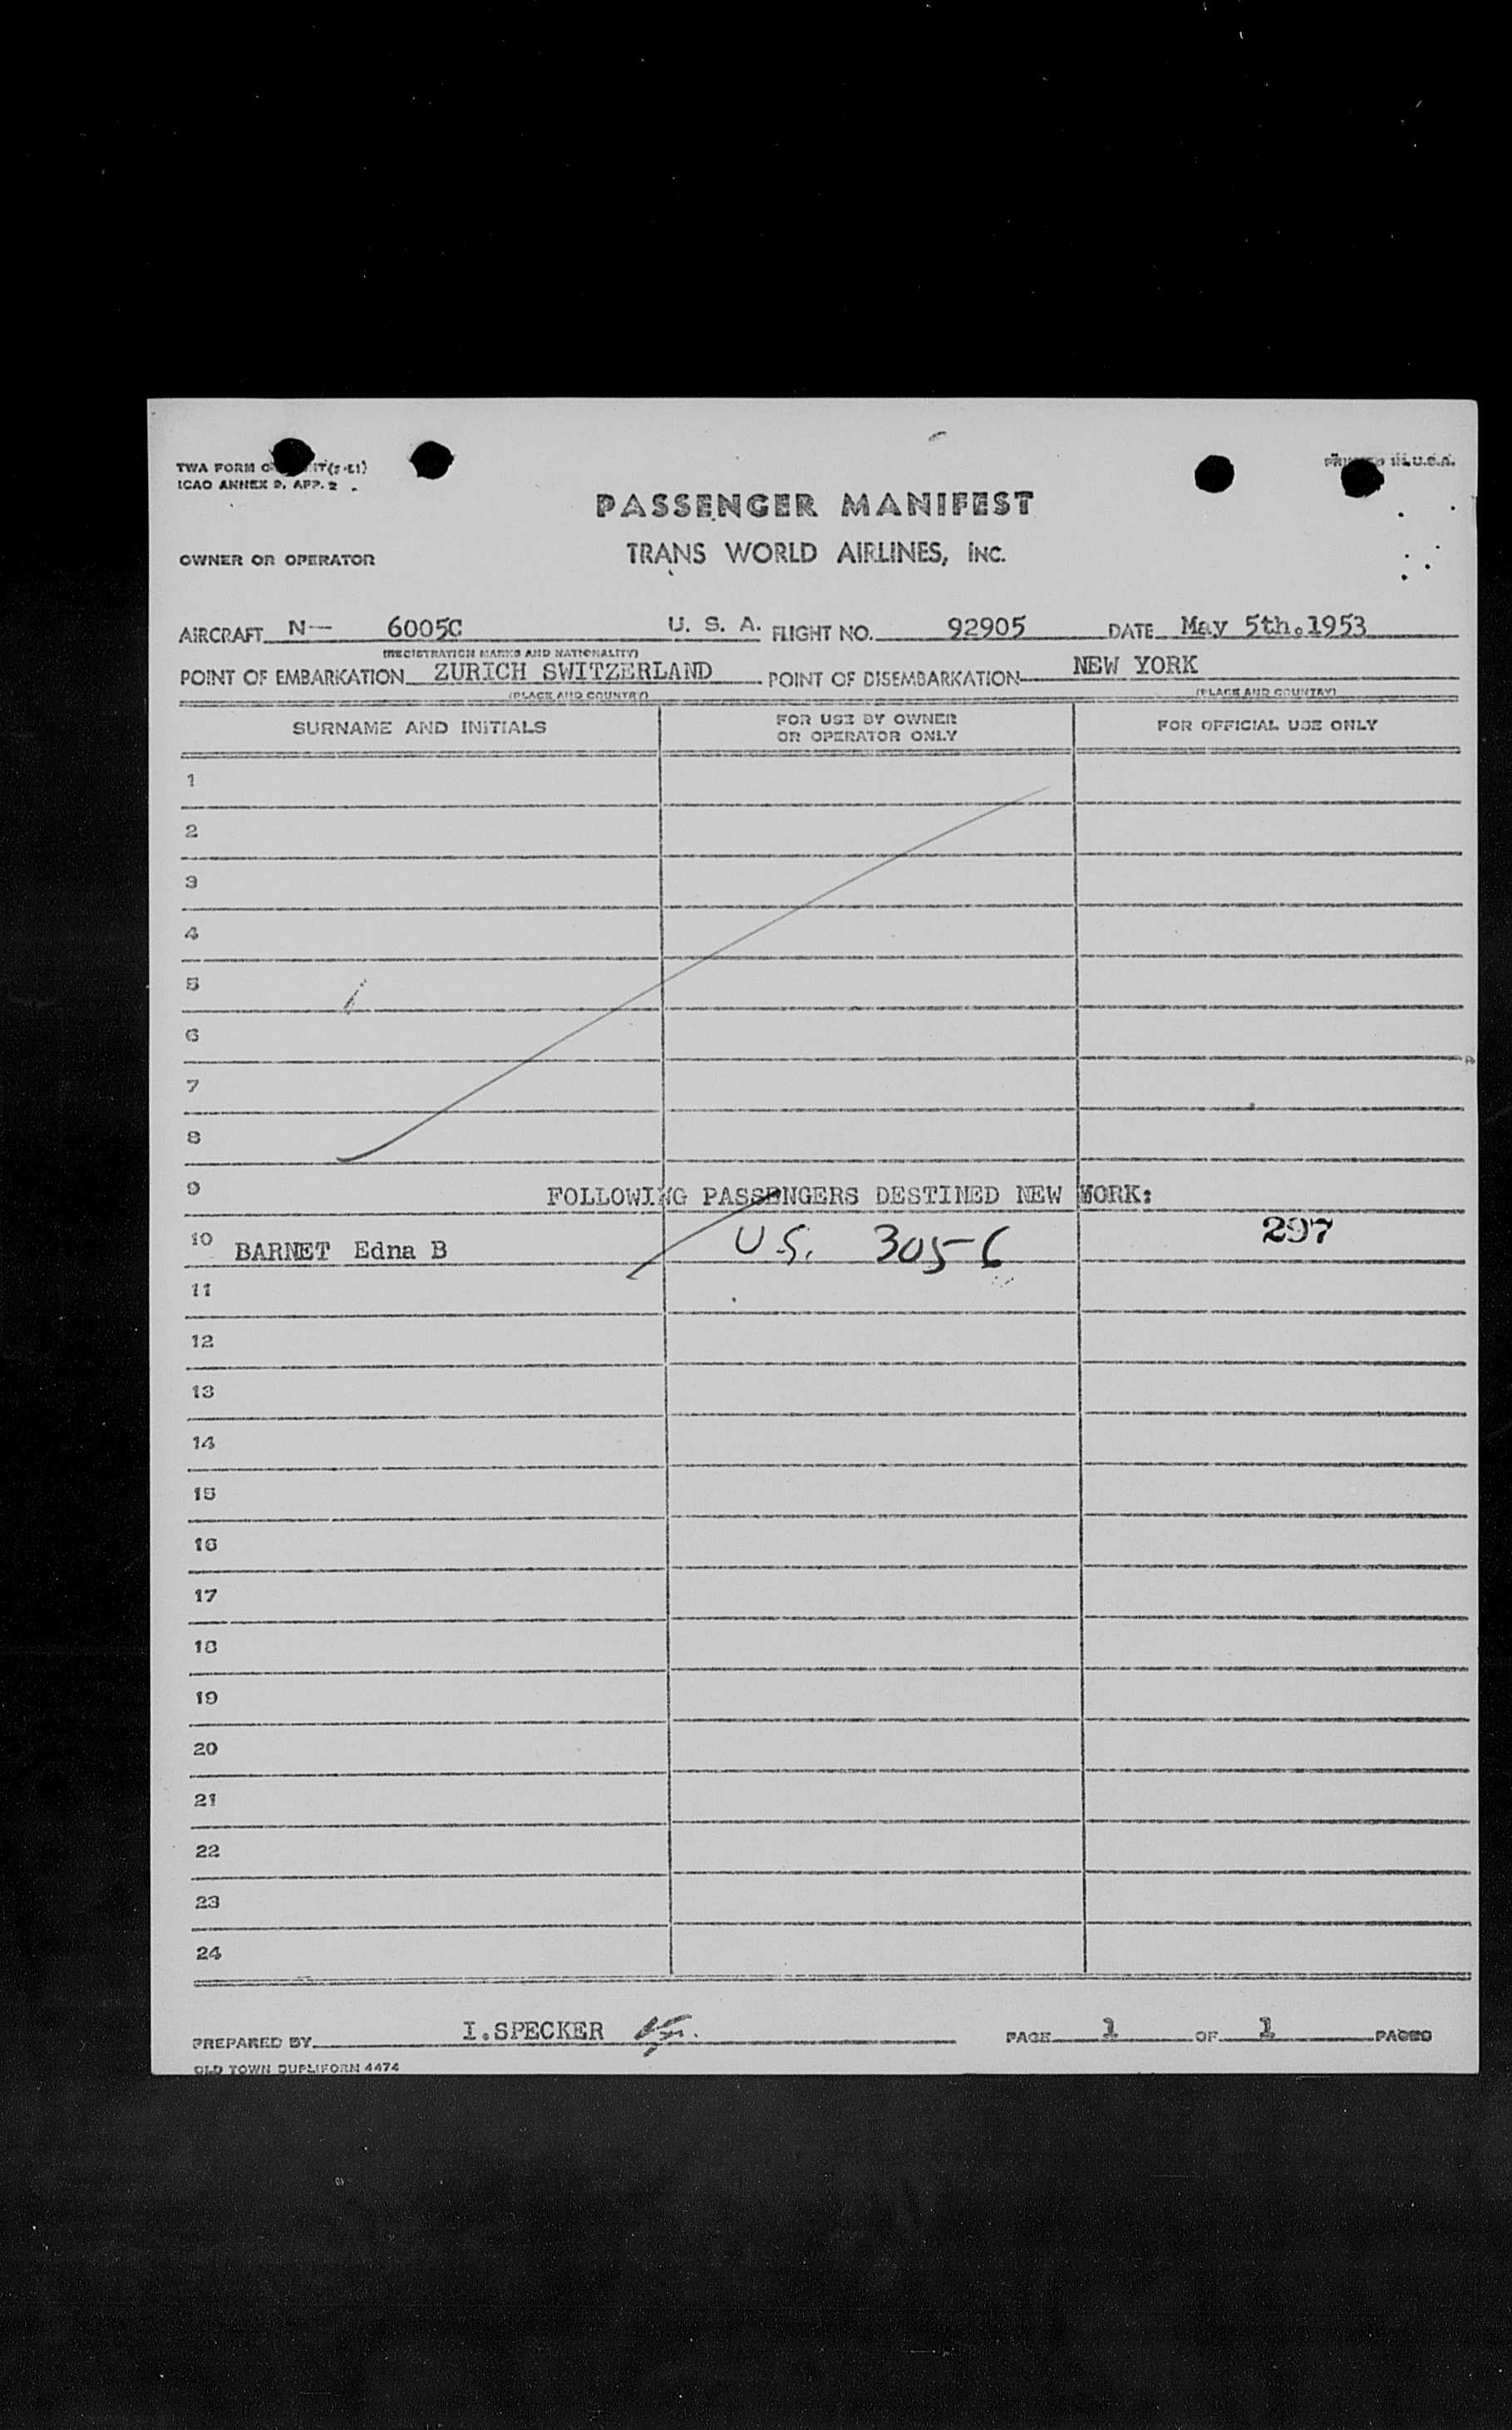 TWA FORM
ICAO ANNEX 9, APP. 2
PRINTED IN U.S.A.
PASSENGER MANIFEST
OWNER OR OPERATOR TRANS WORLD AIRLINES, INC.
AIRCRAFT N— 6005C U. S. A. FLIGHT NO. 92905 DATE May 5th.1953
(REGISTRATION MARKS AND NATIONALITY)
POINT OF EMBARKATION ZURICH SWITZERLAND POINT OF DISEMBARKATION NEW YORK
(PLACE AND COUNTRY) (PLACE AND COUNTRY)
SURNAME AND INITIALS FOR USE BY OWNER OR OPERATOR ONLY FOR OFFICIAL USE ONLY
1
2
3
4
5
6
7
8
9 FOLLOWING PASSENGERS DESTINED NEW YORK:
10 BARNET Edna B U.S. 3056 297
11
12
13
14
15
16
17
18
19
20
21
22
23
24
PREPARED BY I.SPECKER PAGE 1 OF 1 PAGES
OLD TOWN DUPLIFORM 4474